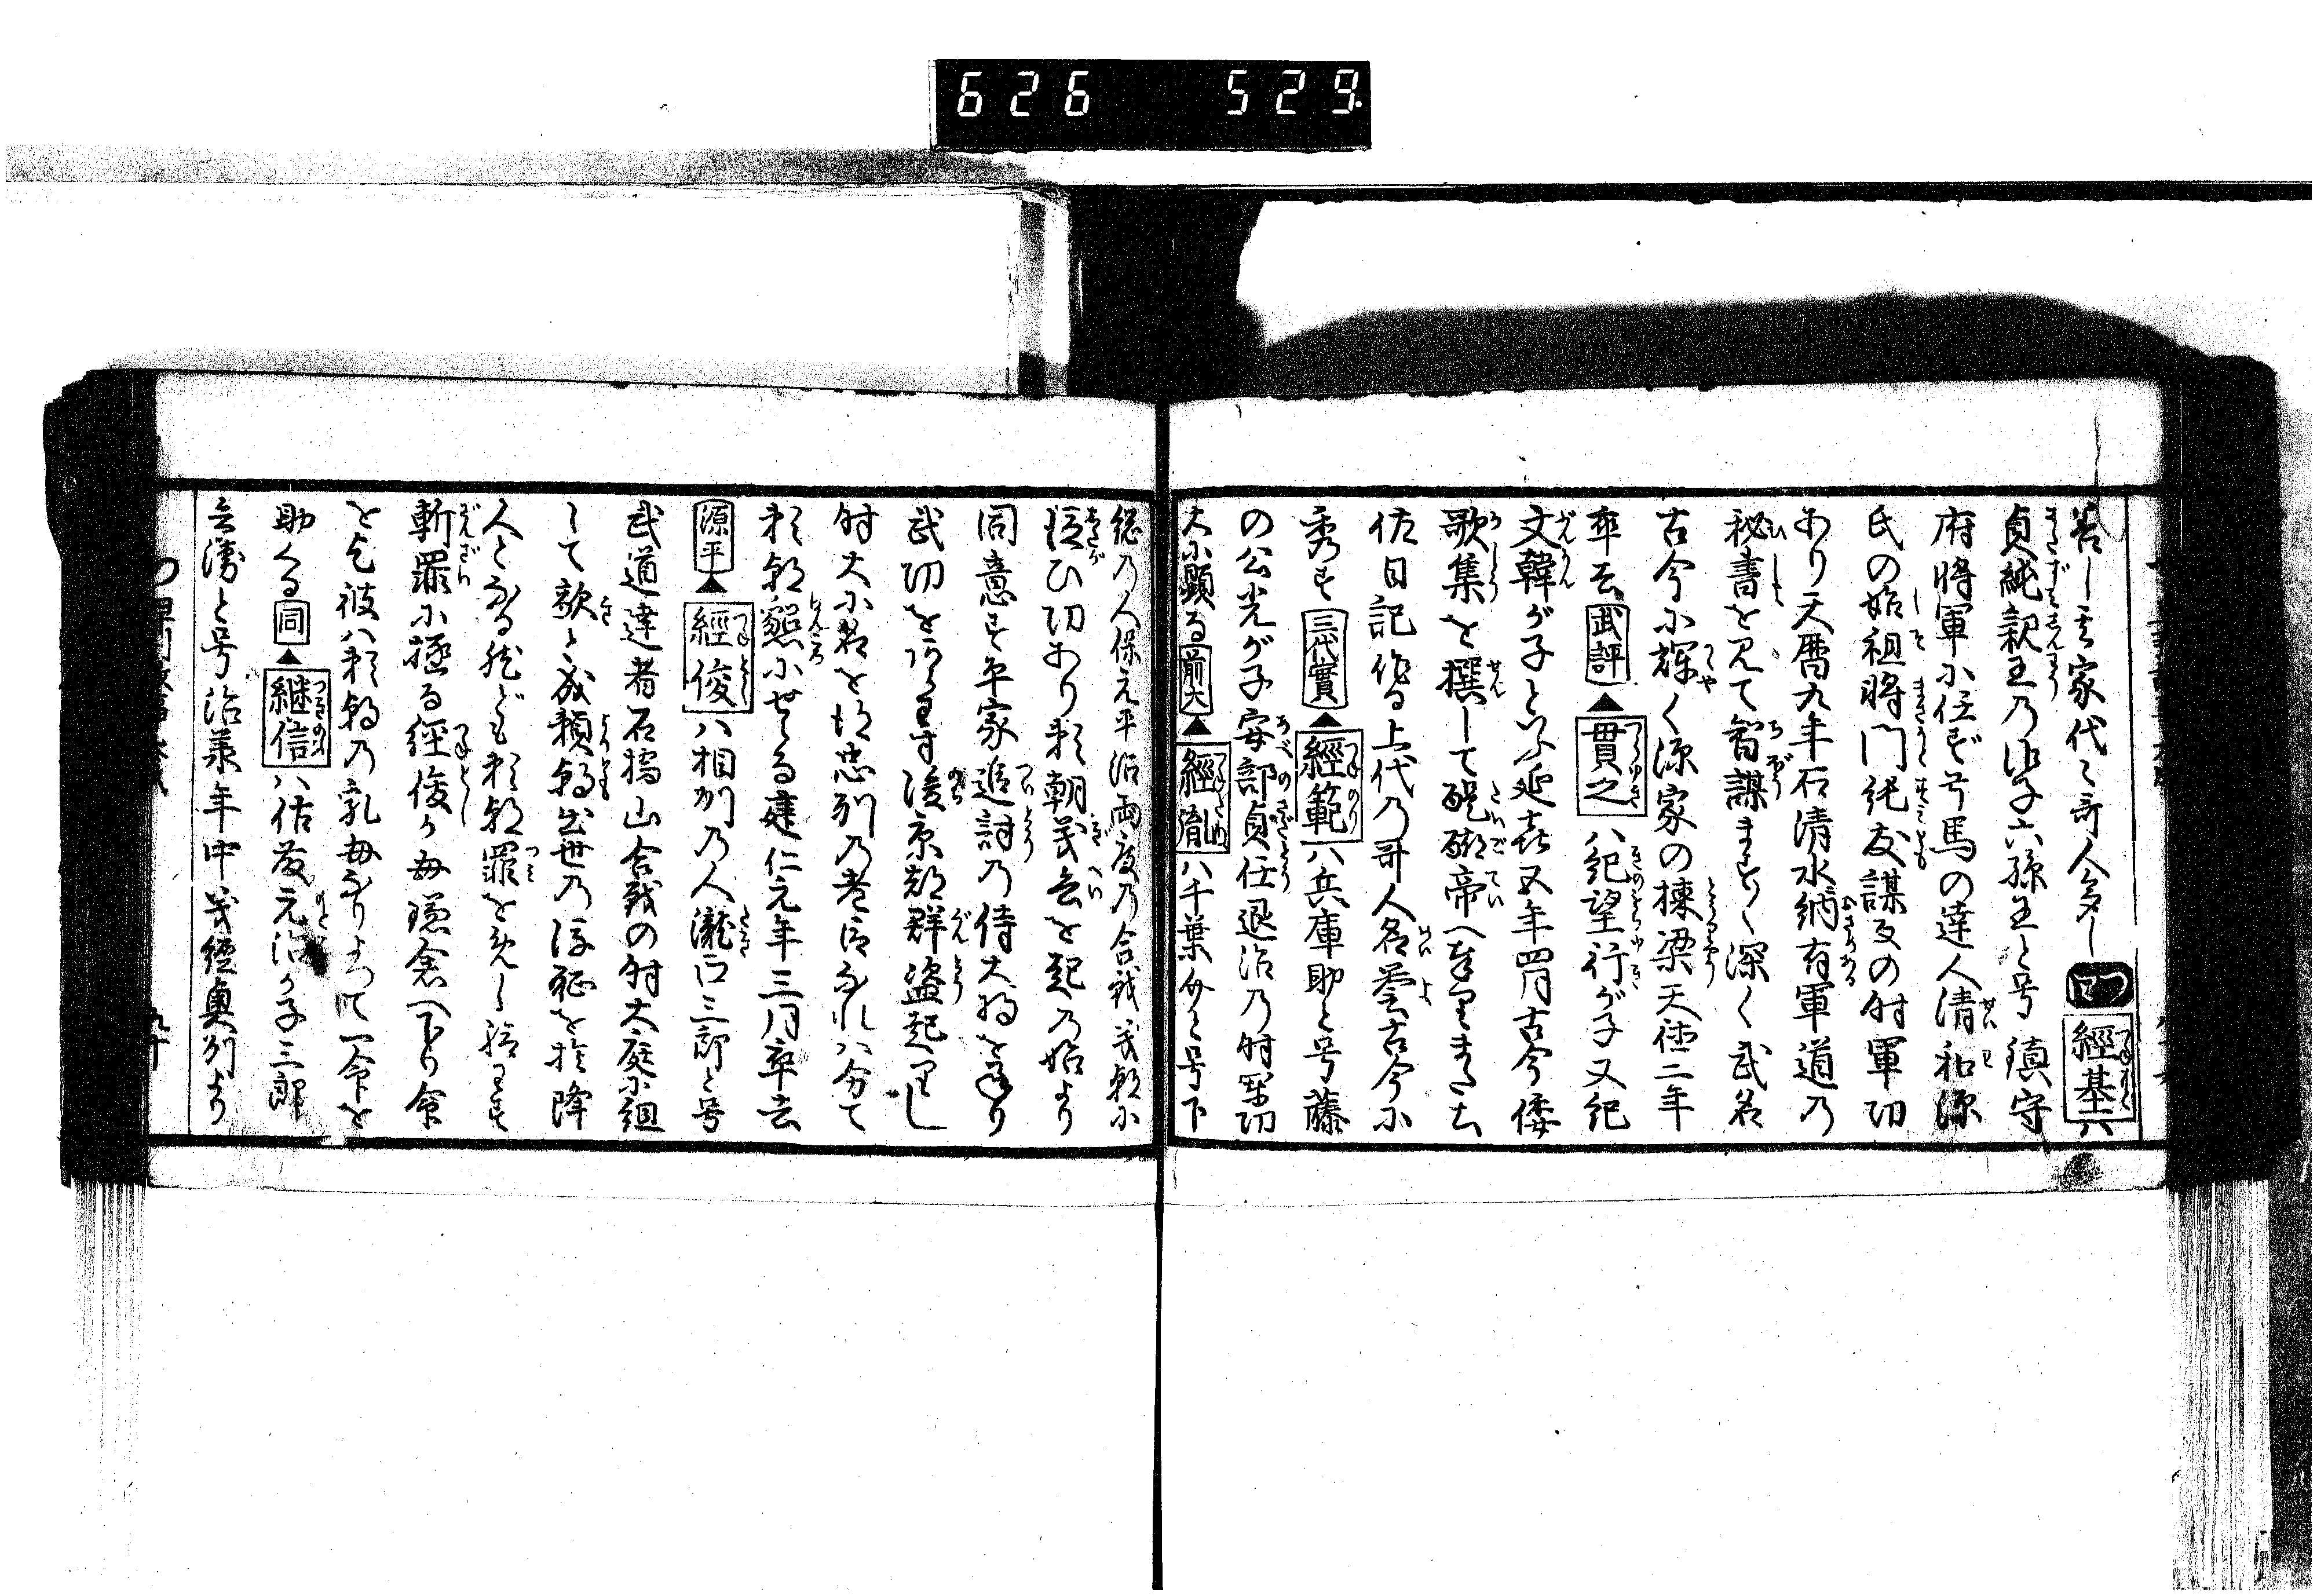 626 529.
若し其家代々哥人多し つ 經基ハ
貞純親王乃御子六孫王と号鎮守
府将軍小任ず弓馬の達人清和源
氏の始祖将門純友謀反の時軍功
あり天暦九年石清水納有軍道乃
秘書を見て智謀ますく深く武名
古今小輝く源家の棟梁天徳二年
卒去 武評 ▲ 貫之 ハ紀望行が子又紀
文幹が子といふ延喜五年四月古今倭
歌集を撰して醍醐帝へ奉るまた土
佐日記作る上代乃哥人名誉古今小
秀す 三代實 ▲ 經範 ハ兵庫助と号藤
の公光が子安部貞任退治乃時軍功
大小顕る 前大 ▲ 經胤 ハ千葉介と号下
總乃人保元平治両度乃合戦義朝小
従ひ功あり頼朝義兵を起乃始より
同意す平家追討乃侍大将を承り
武功をあらはす後京都群盗起りし
時大小名を
頼朝懇小せる建仁元年三月卒去
源平 ▲ 經俊 ハ相州乃人瀧口三郎と号
武道達者石橋山合戦の時大庭小組
して敵と成頼朝出世乃後 降
人となる然ども頼朝罪を
斬罪小極る經俊か母鎌倉へ下り命
を乞彼ハ頼朝乃乳母なりよつて一命を
助くる 同 ▲ 継信 ハ佐藤元治か子三郎
兵衛と号治承年中義經奥州より